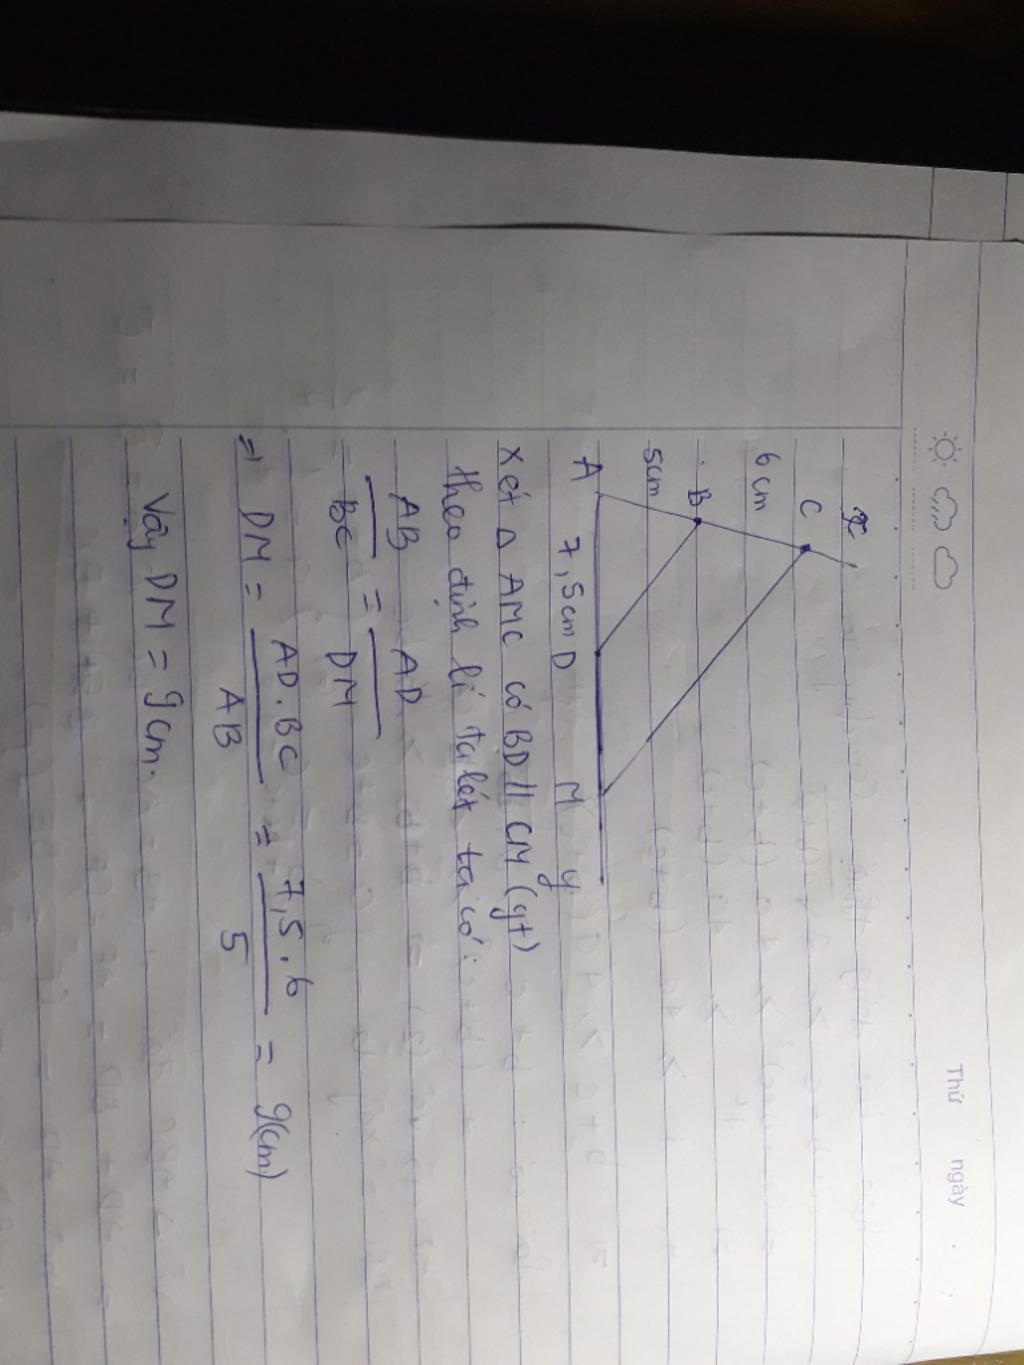 Thứ ngày
x
C
6 cm
B
5cm
A 7,5cm D M y
Xét Δ AMC có BD // CM (gt)
theo định lí ta lét ta có:
AB/BC = AD/DM
=> DM = AD.BC/AB = 7,5.6/5 = 9(cm)
Vậy DM = 9cm.